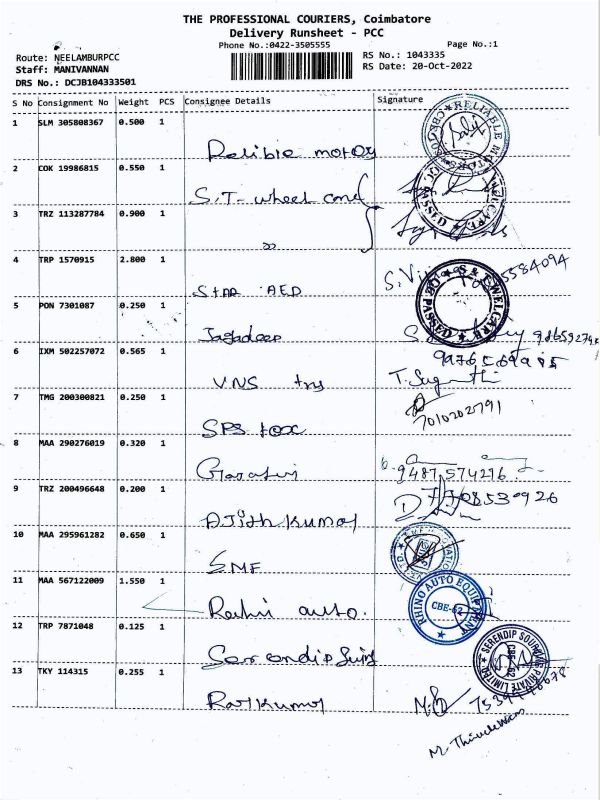 THE PROFESSIONAL COURIERS, Coimbatore
Delivery Runsheet - PCC
Phone No.:0422-3505555
Page No.:1
Route: NEELAMBURPCC
RS No.: 1043335
Staff: MANIVANNAN
RS Date: 20-Oct-2022
DRS No.: DCJB104333501
S No Consignment No Weight PCS Consignee Details Signature
1 SLM 305808367 0.500 1
Relible motors
2 COK 19986815 0.550 1
S.T- wheel
3 TRZ 113287784 0.900 1
4 TRP 1570915 2.800 1
Star AED
5584094
5 PON 7301087 0.250 1
Jagadeep
6 IXM 502257072 0.565 1
VNS
T. Suganthi
7 TMG 200300821 0.250 1
SPS tex
7010202791
8 MAA 290276019 0.320 1
9487574216
9 TRZ 200496648 0.200 1
Ajith kumar
7708530926
10 MAA 295961282 0.650 1
SMF
11 MAA 567122009 1.550 1
auto.
RHINO AUTO EQUIPMENT
CBE-62
12 TRP 7871048 0.125 1
SERENDIP SOURCING PRIVATE LIMITED
CBE-62
13 TKY 114315 0.255 1
Rajkumar